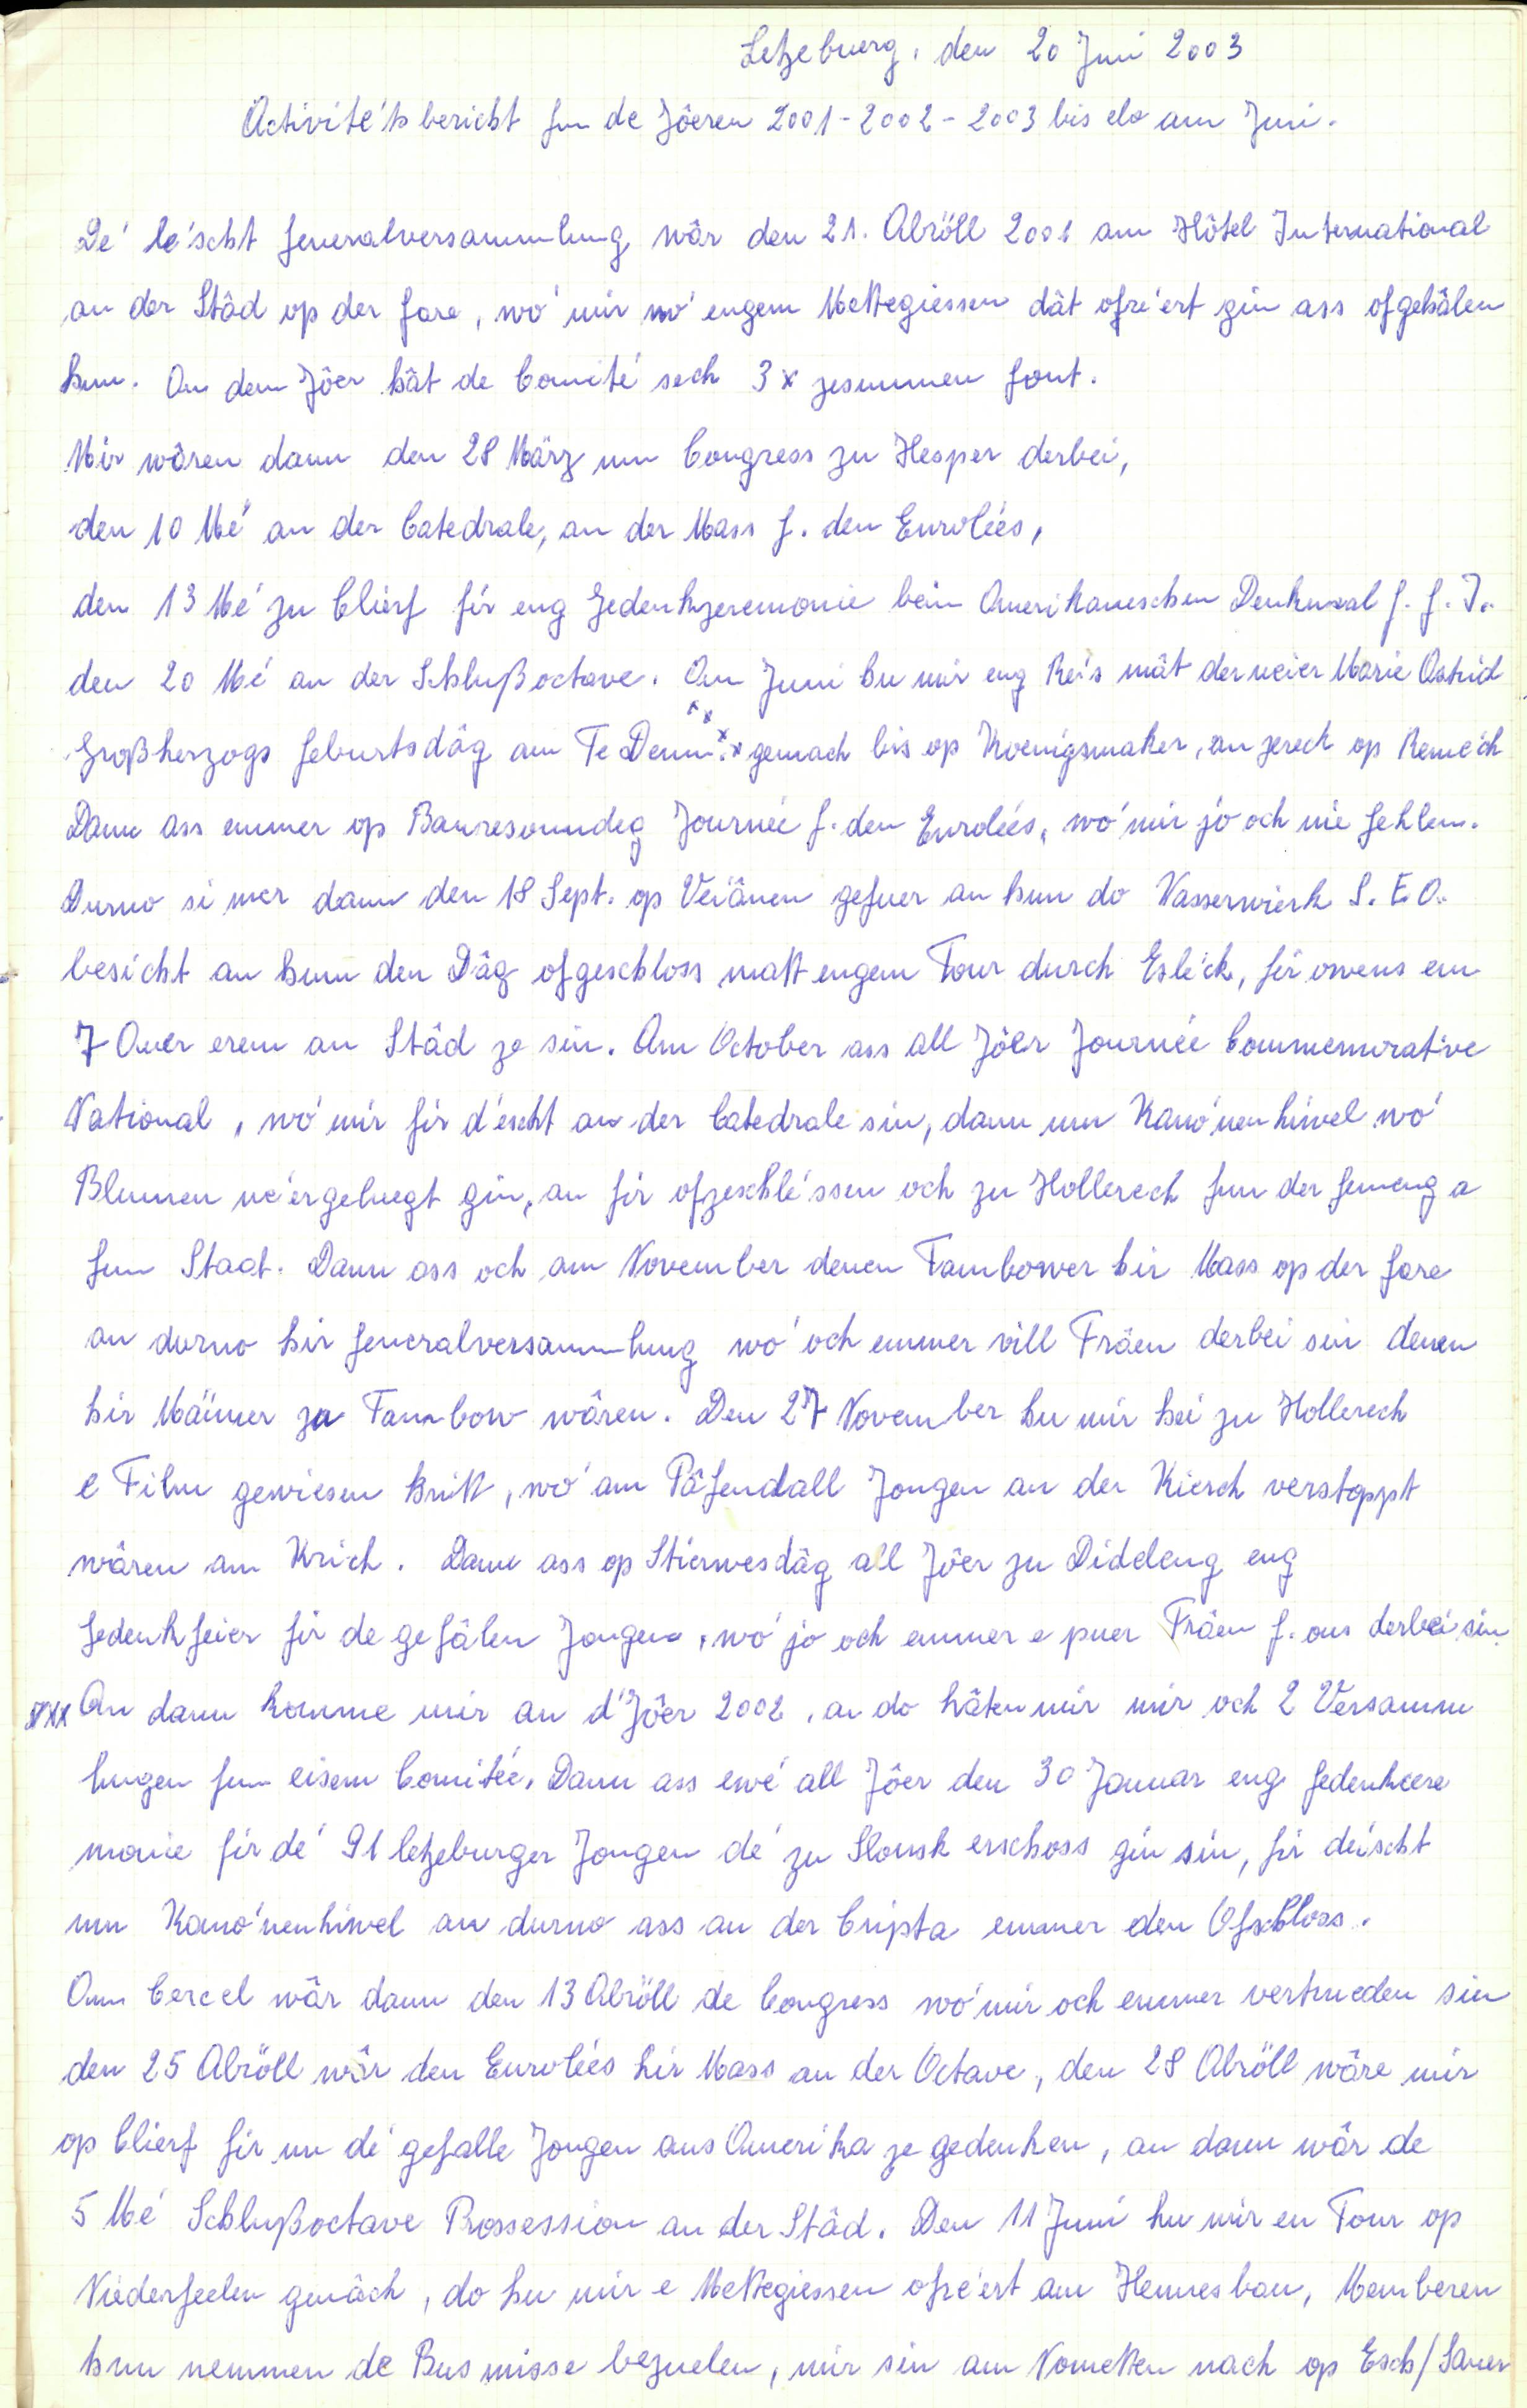 Letzeburg, den 20 Juni 2003
Activité'tsbericht fun de Jôeren 2001-2002-2003 bis elo am Juni.
De' le'scht Generalversammlung wâr den 21. Abröll 2001 am Hôtel International
an der Stâd op der Gare, wo' mir no' engem Mettegiessen dât ofre'ert gin ass ofgehâlen
hun. An dem Jôer hât de Comité sech 3x zesummen font.
Mir wâren dann den 28 März um Congress zu Hesper derbei,
den 10 Mé an der Catedrale, an der Mass f. den Enrolées,
den 13 Mé zu Clierf fir eng Gedenkzeremonie beim Amerikaneschen Denkmal f. G. I.
den 20 Mé an der Schlußoctave. Am Juni hu mir eng Reis mât der neier Marie Astrid
Großherzogs Geburtsdâg am Te Deum. x gemach bis op Koenigsmaker, an zereck op Reme'ch
Dann ass emmer op Banresonndeg Journée f. den Enrolées, wo' mir jo och nie fehlen.
Durno si mer dann den 18 Sept. op Veiânen gefuer an hun do Wasserwierk S. E. O.
besicht an hun den Dâg ofgeschloss matt engem Tour durch Esleck, fir owens em
7 Auer erem an Stâd ze sin. Am October ass all Jôer Journée Commemorative
National, wo' mir fir d'éischt an der Catedrale sin, dann um Kano'nenhiwel wo'
Blumen ne'ergeluegt gin, an fir ofzeschle'ssen och zu Hollerech fun der Gemeng a
fum Staat. Dann ass och am November denen Tambower hir Mass op der Gare
an durno hir Generalversammlung wo' och emmer vill Fräen derbei sin denen
hir Männer zu Tambow wâren. Den 27 November hu mir hei zu Hollerech
e Film gewiesen kritt, wo' am Pâfendall Jongen an der Kierch verstoppt
wâren am Krich. Dann ass op Stierwesdâg all Jôer zu Diddeleng eng
Gedenkfeier fir de gefâlen Jongen, wo' jo och emmer e puer Fräen f. ons derbei sin
xxx An dann komme mir an d'Jôer 2002, an do hâten mir mir och 2 Versamm
lungen fun eisem Comitée. Dann ass ewé all Jôer den 30 Januar eng Gedenkcere
monie fir de' 91 letzeburger Jongen de' zu Slonsk erschoss gin sin, fir déischt
um Kano'nenhiwel an durno ass an der Cripta emmer den Ofschloss.
Am Cercel wâr dann den 13 Abröll de Congress wo' mir och emmer vertrueden sin
den 25 Abröll wâr den Enrolées hir Mass an der Octave, den 28 Abröll wâre mir
op Clierf fir un de' gefalle Jongen aus Amerika ze gedenken, an dann wâr de
5 Mé Schlußoctave Prossession an der Stâd. Den 11 Juni hu mir en Tour op
Niederfeelen gemâch, do hu mir e Mettegiessen ofre'ert am Hennesbau, Memberen
hun nemmen de Bus misse bezuelen, mir sin am Nometten nach op Esch/Sauer